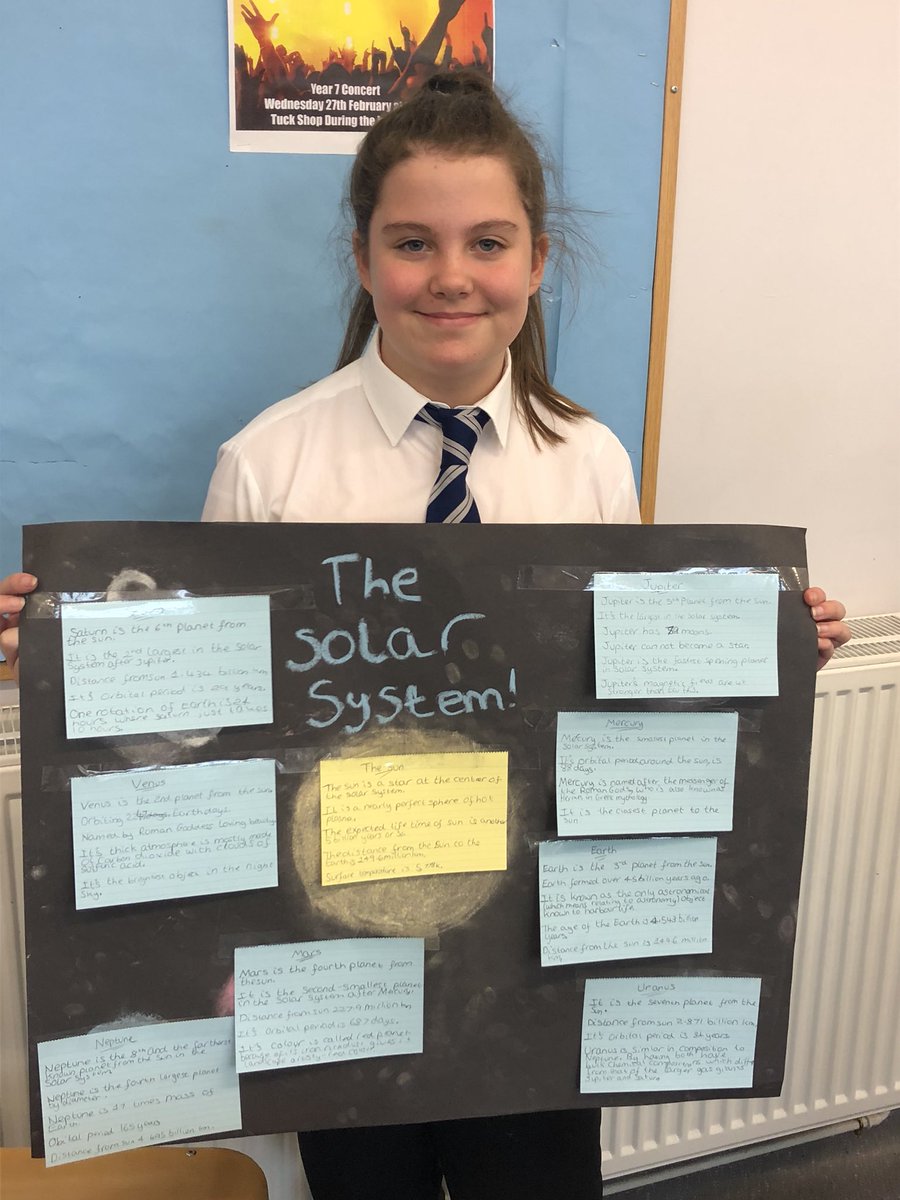 Year 7 Concert
Wednesday 27th February
Tuck Shop During the
The
Solar
System!
Saturn is the 6th Planet from
the sun.
It is the 2nd largest in the Solar
System after Jupiter.
Distance from sun 1.434 billion km
It's orbital period is 29 years.
One rotation of Earth is 24
hours where saturn just
10 hours.
Jupiter
Jupiter is the 5th Planet from the sun.
It's the largest in the solar system.
Jupiter has moons.
Jupiter cannot become a star.
Jupiter is the fastest spinning planet
in Solar System.
Jupiter's magnetic are
stronger than Earths.
Mercury
Mercury is the smallest planet in the
Solar system.
It's orbital period around the sun, is
88 days.
Mercury is named after the messenger of
the Roman Gods, who is also known as
in Greek mythology.
It is the closest planet to the
sun.
Venus
Venus is the 2nd planet from the sun.
Orbiting Earth days.
Named by Roman Goddess Loving beauty
It's thick atmosphere is mostly made
of carbon dioxide with clouds of
acid.
It's the brightest object in the night
Sky.
The sun
The sun is a star at the center of
the solar system.
It is a nearly perfect sphere of hot
plasma.
The expected life time of sun is another
5 billion years or so.
The distance from the Sun to the
Earth is 149.6 million km.
Surface temperature is
Earth
Earth is the 3rd planet from the sun.
Earth formed over 4.5 billion years ago.
It is known as the only astronomical
(which means relating to astronomy) object
known to harbour life.
The age of the Earth is 4.543 billion
years.
Distance from the sun is 149.6 million
km.
Mars
Mars is the fourth planet from
the sun.
It is the second-smallest planet
in the Solar system after Mercury.
Distance from sun 227.9 million km
It's orbital period is 687 days.
It's colour is called red planet
Uranus
It is the seventh planet from the
Sun.
Distance from sun 2.871 billion km.
It's orbital period is 84 years
Uranus is similar in composition to
Neptune. By having both have
bulk chemical which differ
from that of the larger gas giants
Jupiter and Saturn.
Neptune
Neptune is the 8th and the farthest
known planet from the Sun in the
Solar System.
Neptune is the fourth largest planet
by diameter.
Neptune is 17 times mass of
Earth.
Obital period 165 years
Distance from sun 4.495 billion km.